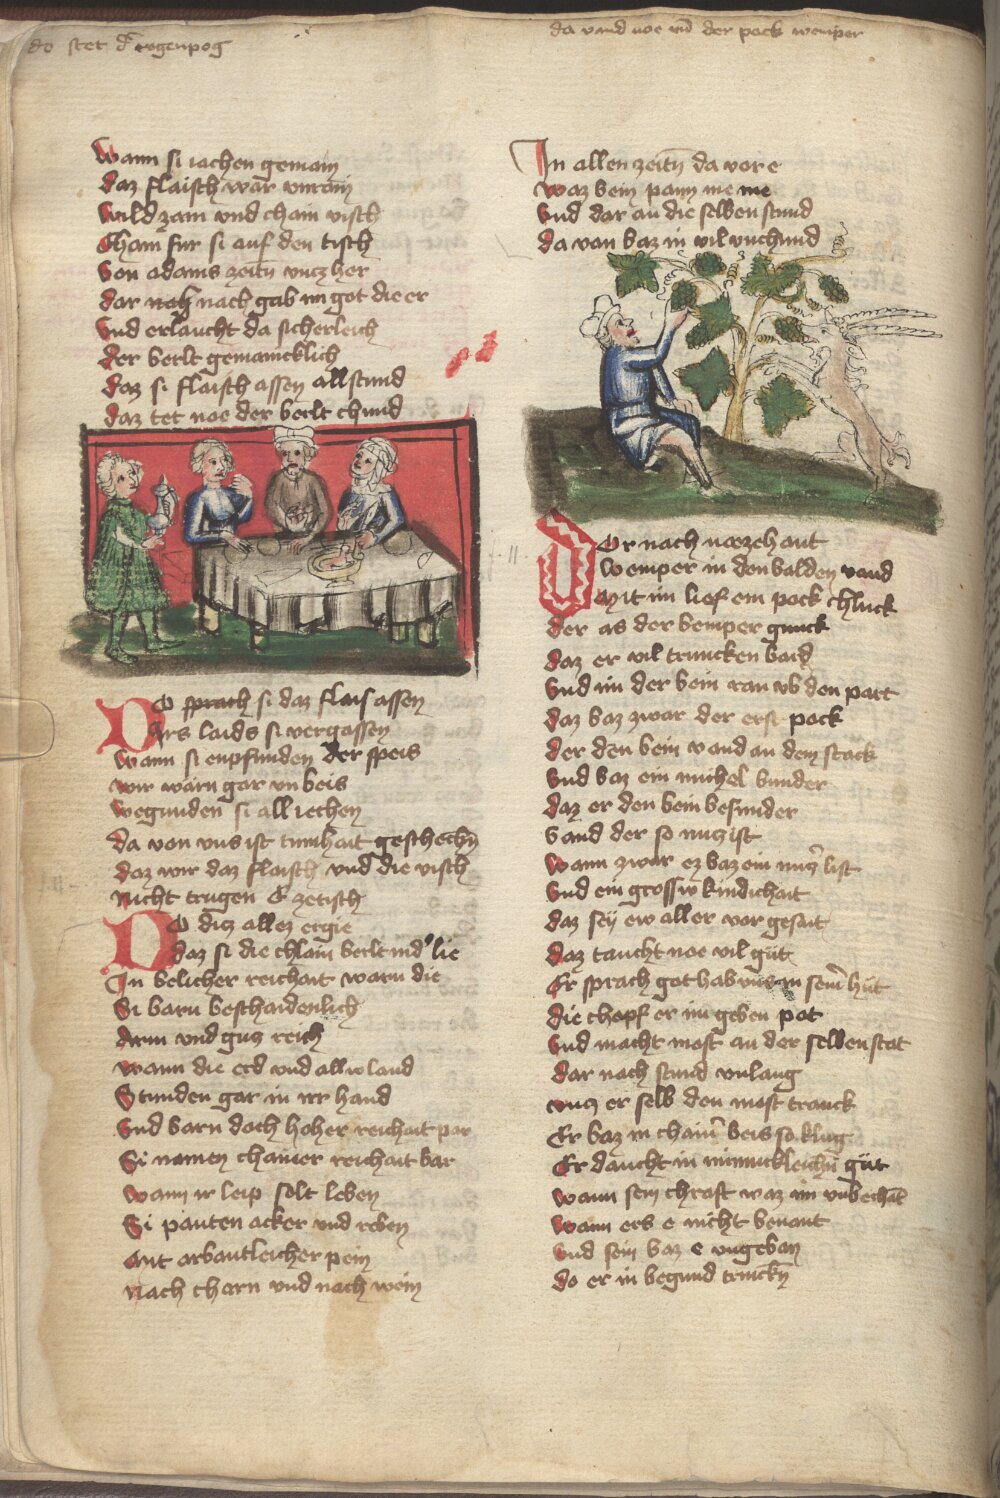 do stet der regenpog
da vand noe vnd der pock wemper
Wann si iachen gemain
daz flaisch war vnrain
Wild zam vnd chain visch
Cham fur si auf den tisch
Von adams zeitn vncz her
dar nach gab im got die er
Vnd erlaucht da sicherleich
der werlt gemainchlich
daz si flaisch assen all stund
daz tet noe der werlt chund
Do sprach si daz flais assen
Irs laids si vergassen
Wann si enpfunden der speis
wir warn gar vnweis
Wegunden si all iechen
da von vns ist tumhait geschechn
daz wir daz flaisch vnd die visch
Nicht trugen ze tisch
Do dicz allez ergie
daz si die chlain werlt lie
In welicher reichait warn die
Si warn beschaidenlich
Arm vnd gucz reich
wann die erd vnd alle land
Stunden gar in irr hand
Vnd warn doch hoher reichait par
Si namen chainer reichait war
Wann ir leip solt leben
Si pauten acker vnd reben
Mit arbaitleicher pein
Nach charn vnd nach wein
In allen zeitn da vor e
Waz wein pann me
Vnd dar an die selben stund
da von waz in vil vnchund
Dor nach noe zehant
Wemper in den walden vand
Mit im lief ein pock chluck
der as der wemper gnuck
daz er vil truncken ward
Vnd im der wein ran vb den part
daz waz zwar der erst pock
der den wein vand an dem stock
Vnd waz ein michel wunder
daz er den wein besunder
Vand der so nucz ist
Wann zwar ez waz ein list
Vnd ein grossew kindichait
daz sey ew aller vor gesait
daz taucht noe vil güt
Er sprach got hab vns in seiner hüt
die chopf er im geben pot
Vnd macht most an der selben stat
dar nach stund vnlang
vncz er selb den most tranck
Er waz in chainer weis so klug
Er daucht in güt
Wann sein chraft waz im vnbechant
Wann ers e nicht benant
Vnd sein waz e vngewan
do er in begund trinckn